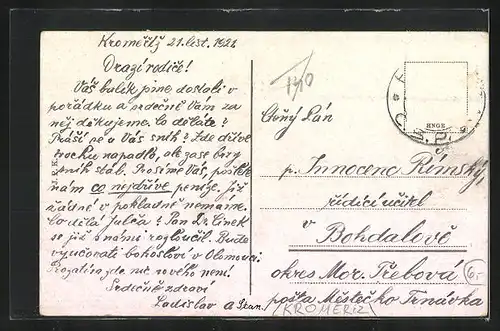 Kroměříž 21. list. 1921
Drazí rodiče!
Váš balík jsme dostali v
pořádku a srdečně Vám za
něj děkujeme. Co děláte?
Práší se u Vás sníh? Zde dříve
trochu napadlo, ale zase brzy
sníh slab. Prosíme Vás, pošlete
nám co nejdříve peníze. Již
žádné v pokladně nemáme.
Co dělá Julča? Pan Dr. Cinek
se již s námi rozloučil. Bude
vyučovati bohosloví v Olomouci
zde nic nového není!
Srdečně zdraví
Ladislav a Fran.
1910
HNGE
Ctěný Pán
p. Innocenc Římský,
řídící učitel
v Bohdalově
okres Mor. Třebová
pošta Městečko Trnávka
(KROMERIZ)
6,-